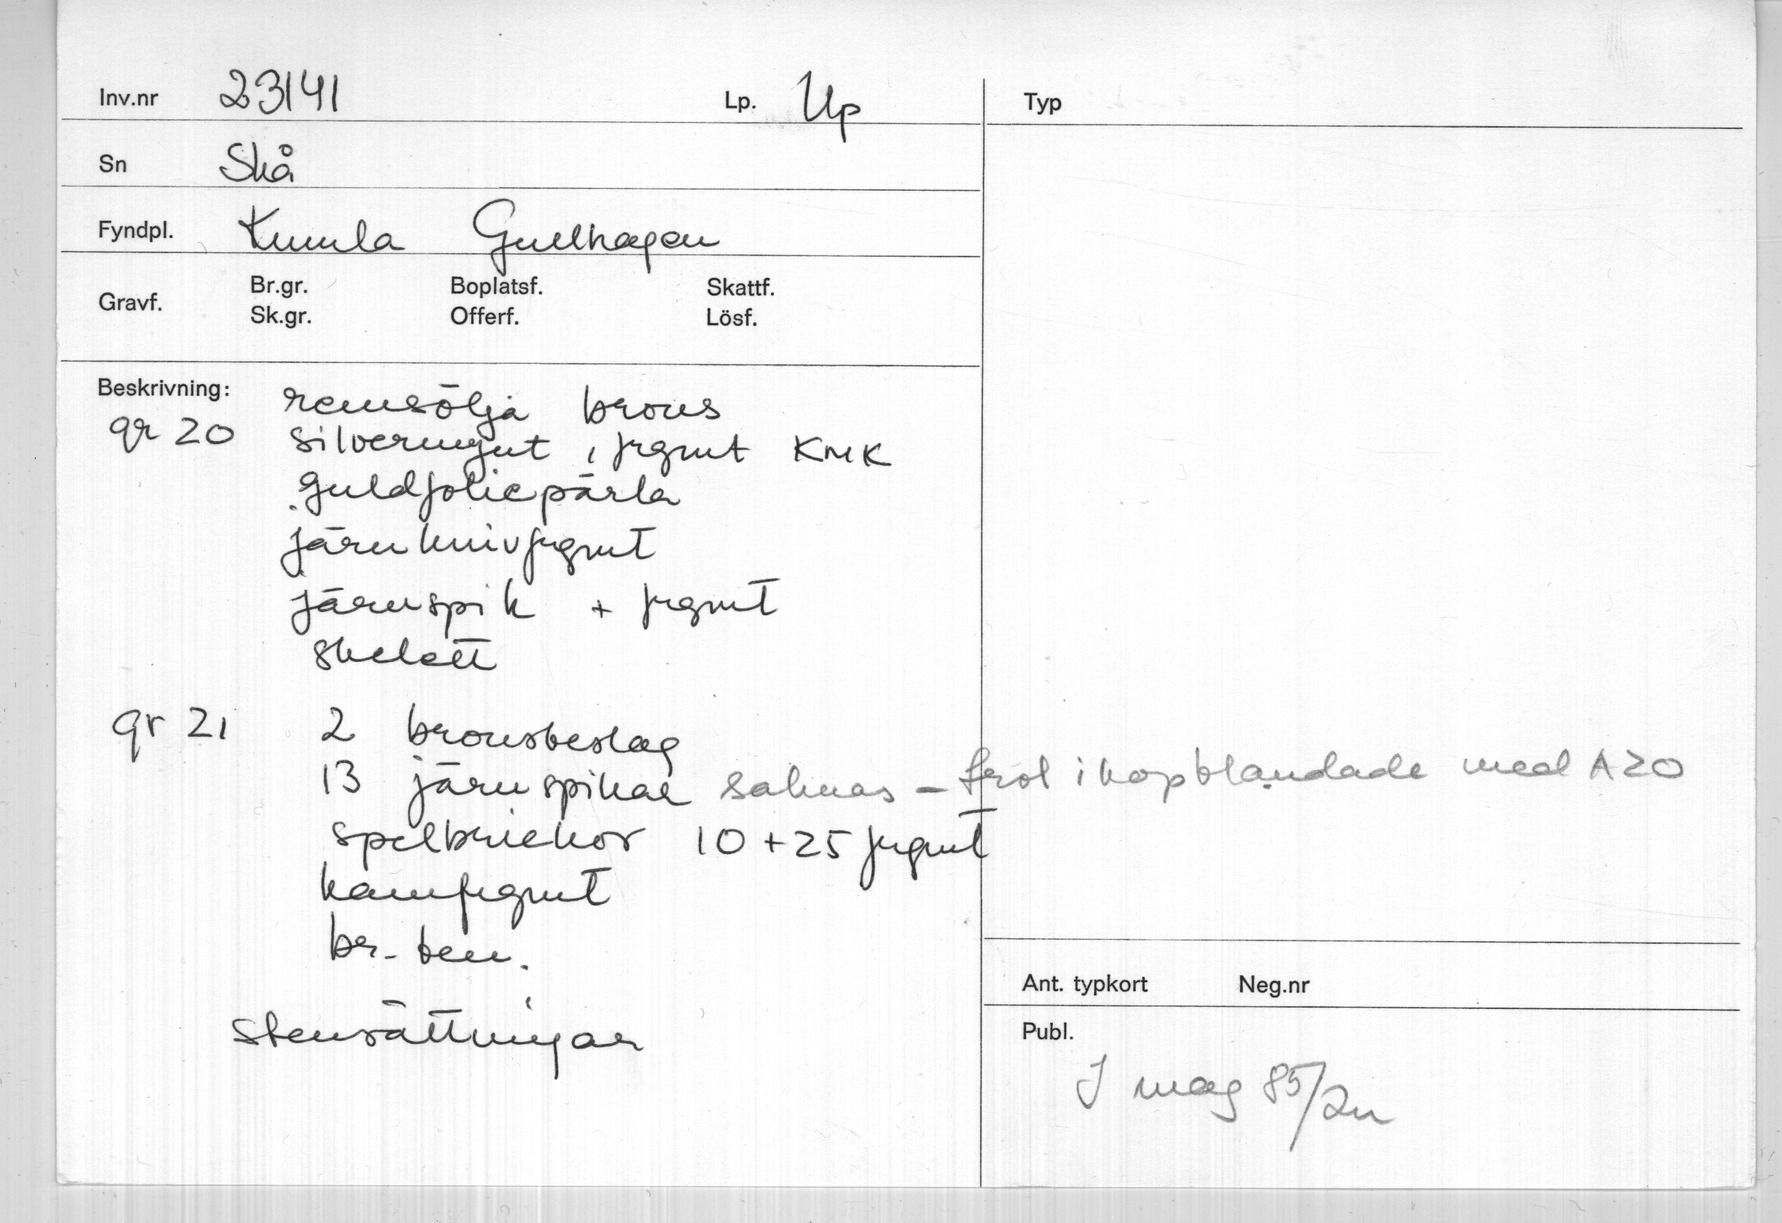 Inv.nr 23141 Lp. Up
Typ
Sn Skå
Fyndpl. Kumla Gullhagen
Gravf. Br.gr. Boplatsf. Skattf.
Sk.gr. Offerf. Lösf.
Beskrivning: remsölja brons
gr 20 silvermynt, frgmt KMK
guldfoliepärla
järnknivfrgmt
järnspik + frgmt
skelett
gr 21 2 bronsbeslag
13 järnspikar saknas – trol ihopblandade med A20
spelbrickor 10 + 25 frgmt
kamfrgmt
br. ben.
stensättningar
Ant. typkort Neg.nr
Publ.
J mag 85/